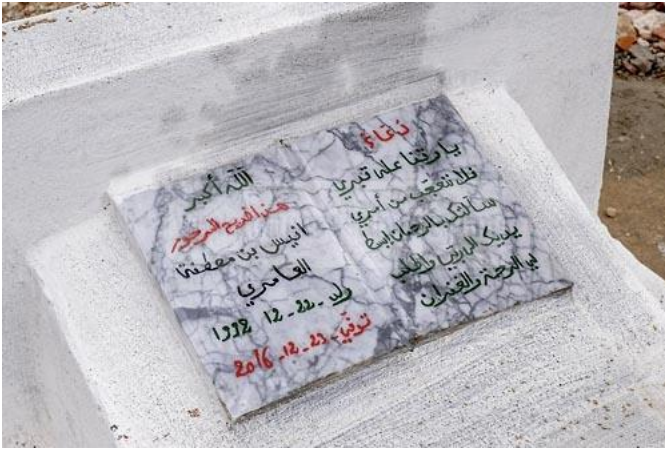 دعاء
يا واقفا على قبري
فلا تتعجب من أمري
سألتك بالرحمان ابسط
يديك الى ربي واطلب
لي الرحمة والغفران
الله أكبر
هذا ضريح المرحوم
انيس بن مصطفى
العامري
ولد 22-12-1992
توفي 23-12-2016